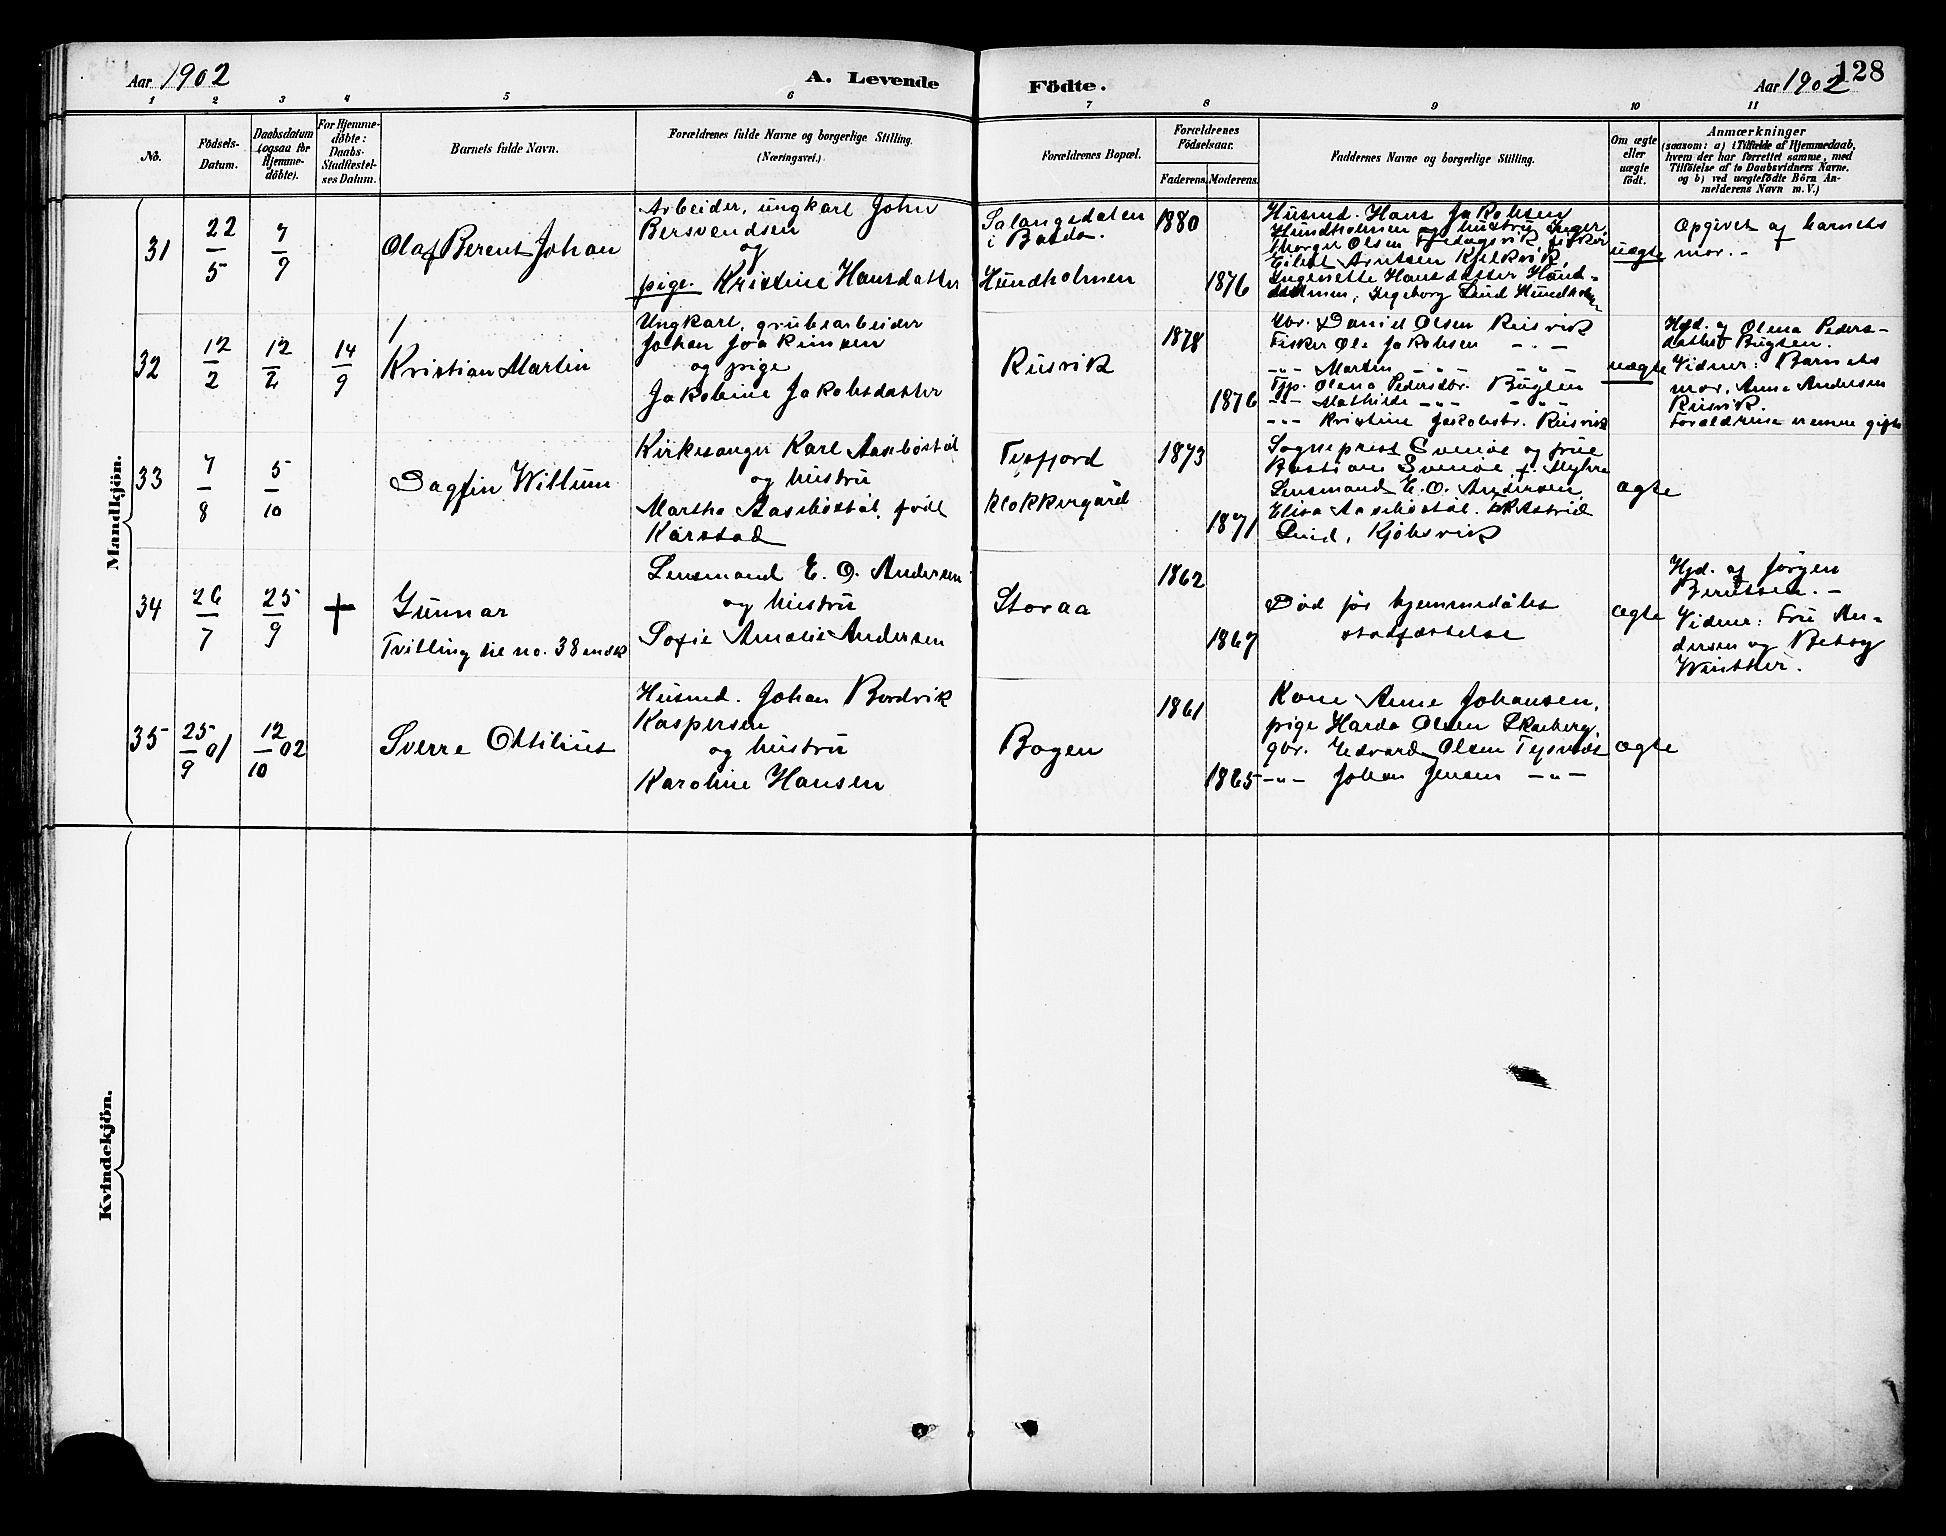 Aar 1902
A. Levende
Födte.
Aar 1902
128
1 2 3 4 5 6 7 8 9 10 11
No.
Födsels-
Datum.
Daabsdatum
(ogsaa for
Hjemme-
döbte).
For Hjemme-
döbte:
Daabs-
Stadfæstel-
ses Datum.
Barnets fulde Navn.
Forældrenes fulde Navne og borgerlige Stilling.
(Næringsvei.)
Forældrenes Bopæl.
Forældrenes
Födselsaar.
Faderens. Moderens.
Faddernes Navne og borgerlige Stilling.
Om ægte
eller
uægte
födt.
Anmærkninger
(saasom: a) i Tilfælde af Hjemmedaab,
hvem der har forrettet samme, med
Tilföielse af to Daabsvidners Navne,
og b) ved uægtefödte Börn An-
melderens Navn m. V.)
Mandkjön.
31
22/5
7/9
Olaf Berent Johan
Arbeider, ungkarl John
Bersvendsen
og
pige. Kristine Hansdatter
Salangsdalen
i Bardo.
Hundholmen
1880
1876
Husmd. Hans Jakobsen
Hundholmen og hustru Inger,
Thorger Olsen fisker
Eilert Arntsen Kjelkvik,
Ingenette Hansdatter Hund-
holmen, Ingeborg Lind Hundholm
uægte
Opgivet af barnets
mor. -
32
12/2
12/2
14/9
Kristian Martin
Ungkarl, grubearbeider
Johan Joakimsen
og pige
Jakobine Jakobsdatter
Rusvik
1878
1876
Gbr. Daniel Olsen Rusvik
Fisker Ole Jakobsen - " -
- " - Martin - " - - " -
Tjp. Olena Pedersdtr. Bugten
- " - Mathilde - " - - " -
- " - Kristine Jakobsdtr. Rusvik
uægte
Hjd. af Olena Peders-
datter Bugten.
Vidner: Barnets
mor, Anna Andersen
Rusvik.
Forældrene ere gifte
33
7/8
5/10
Dagfin Willum
Kirkesanger Karl Aasebøstøl
og hustru
Martha Aasebøstøl, født
Karstad
Tysfjord
klokkergaard
1873
1871
Sogneprest Svenöe og frue
Svenöe f. Myhre
Lensmand E. O. Andersen,
Elisa Aasebøstøl. Astrid
Lund, Kjøbsvik
ægte
34
26/7
25/9
†
Gunnar
Tvilling til no. 38 andk
Lensmand E. O. Andersen
og hustru
Sofie Amalie Andersen
Storaa
1862
1867
Død før hjemmedåbs
stadfæstelse
ægte
Hjd. af Jörgen
Berntsen. -
Vidner: Fru An-
dersen og Betsy
Winther.
35
25/9 01
12/10 02
Sverre Ottilius
Husmd. Johan Bordvik
Kaspersen
og hustru
Karoline Hansen
Bogen
1861
1865
Kone Anne Johansen,
pige Harda Olsen Skarberg,
gbr. Edvard Olsen Tysnes
- " - Johan Jensen - " -
ægte
Kvindekjön.